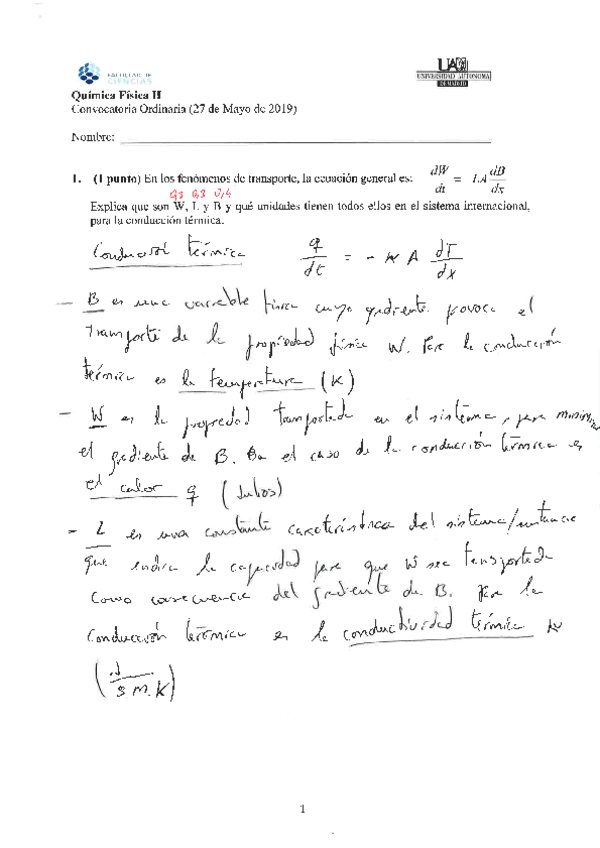 FACULTAD DE
CIENCIAS
UAM
UNIVERSIDAD AUTONOMA
DE MADRID
Química Física II
Convocatoria Ordinaria (27 de Mayo de 2019)
Nombre:
1. (1 punto) En los fenómenos de transporte, la ecuación general es: dW/dt = LA dB/dx
0,3 0,3 0,4
Explica que son W, L y B y qué unidades tienen todos ellos en el sistema internacional,
para la conducción térmica.
Conducción térmica q/dt = - κ A dT/dx
— B es una variable física cuyo gradiente provoca el
transporte de la propiedad física W. Para la conducción
térmica es la temperatura (K)
— W es la propiedad transportada en el sistema, para
el gradiente de B. En el caso de la conducción térmica es
el calor q (Julios)
- L es una constante característica del sistema/sustancia
que indica la capacidad para que W sea transportada
como consecuencia del gradiente de B. Para la
conducción térmica es la conductividad térmica κ
(J / s m. K)
1